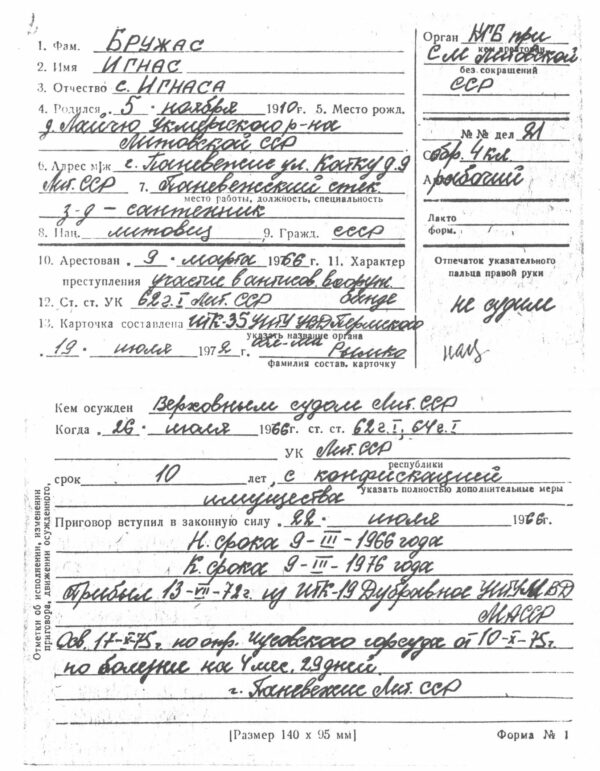 1. Фам. БРУЖАС
2. Имя ИГНАС
3. Отчество с. ИГНАСА
4. Родился 5 · ноября 1910г. 5. Место рожд.
д. Лайчю Укмергского р-на
Литовской ССР
6. Адрес м/ж г. Паневежис ул. Катку д. 9
Лит. ССР 7. Паневежский стек.
место работы, должность, специальность
з-д - сантехник
8. Нац. литовец 9. Гражд. СССР
10. Арестован 9 · марта 1966 г. 11. Характер
преступления участие в антисов. вооруж.
банде
12. Ст. ст. УК 62 ч. I Лит. ССР
13. Карточка составлена ИТК-35 УИТУ УВД Пермского
указать название органа
обл-ма
19 · июля 1972 г. Рымко
фамилия состав. карточку
Орган КГБ при
кем арестован
СМ Литовской
без сокращений
ССР
№ № дел 21
Обр. 4 кл.
рабочий
Лакто
форм.
Отпечаток указательного
пальца правой руки
не судим
нац
Кем осужден Верховным судом Лит. ССР
Когда 26 · июля 1966г. ст. ст. 62 ч. I, 64 ч. I
УК Лит. ССР
республики
срок 10 лет, с конфискацией
указать полностью дополнительные меры
имущества
Приговор вступил в законную силу 22 · июля 1966г.
Н. срока 9-III-1966 года
К. срока 9-III-1976 года
Прибыл 13-VII-72г. из ИТК-19 Дубравное УИТУ МВД
МАССР
Осв. 17-X-75г. по опр. Чусовского горсуда от 10-X-75г.
по болезни на 4 мес. 29 дней.
г. Паневежис Лит. ССР
Отметки об исполнении, изменении
приговора, движении осужденного.
[Размер 140 x 95 мм] Форма № 1